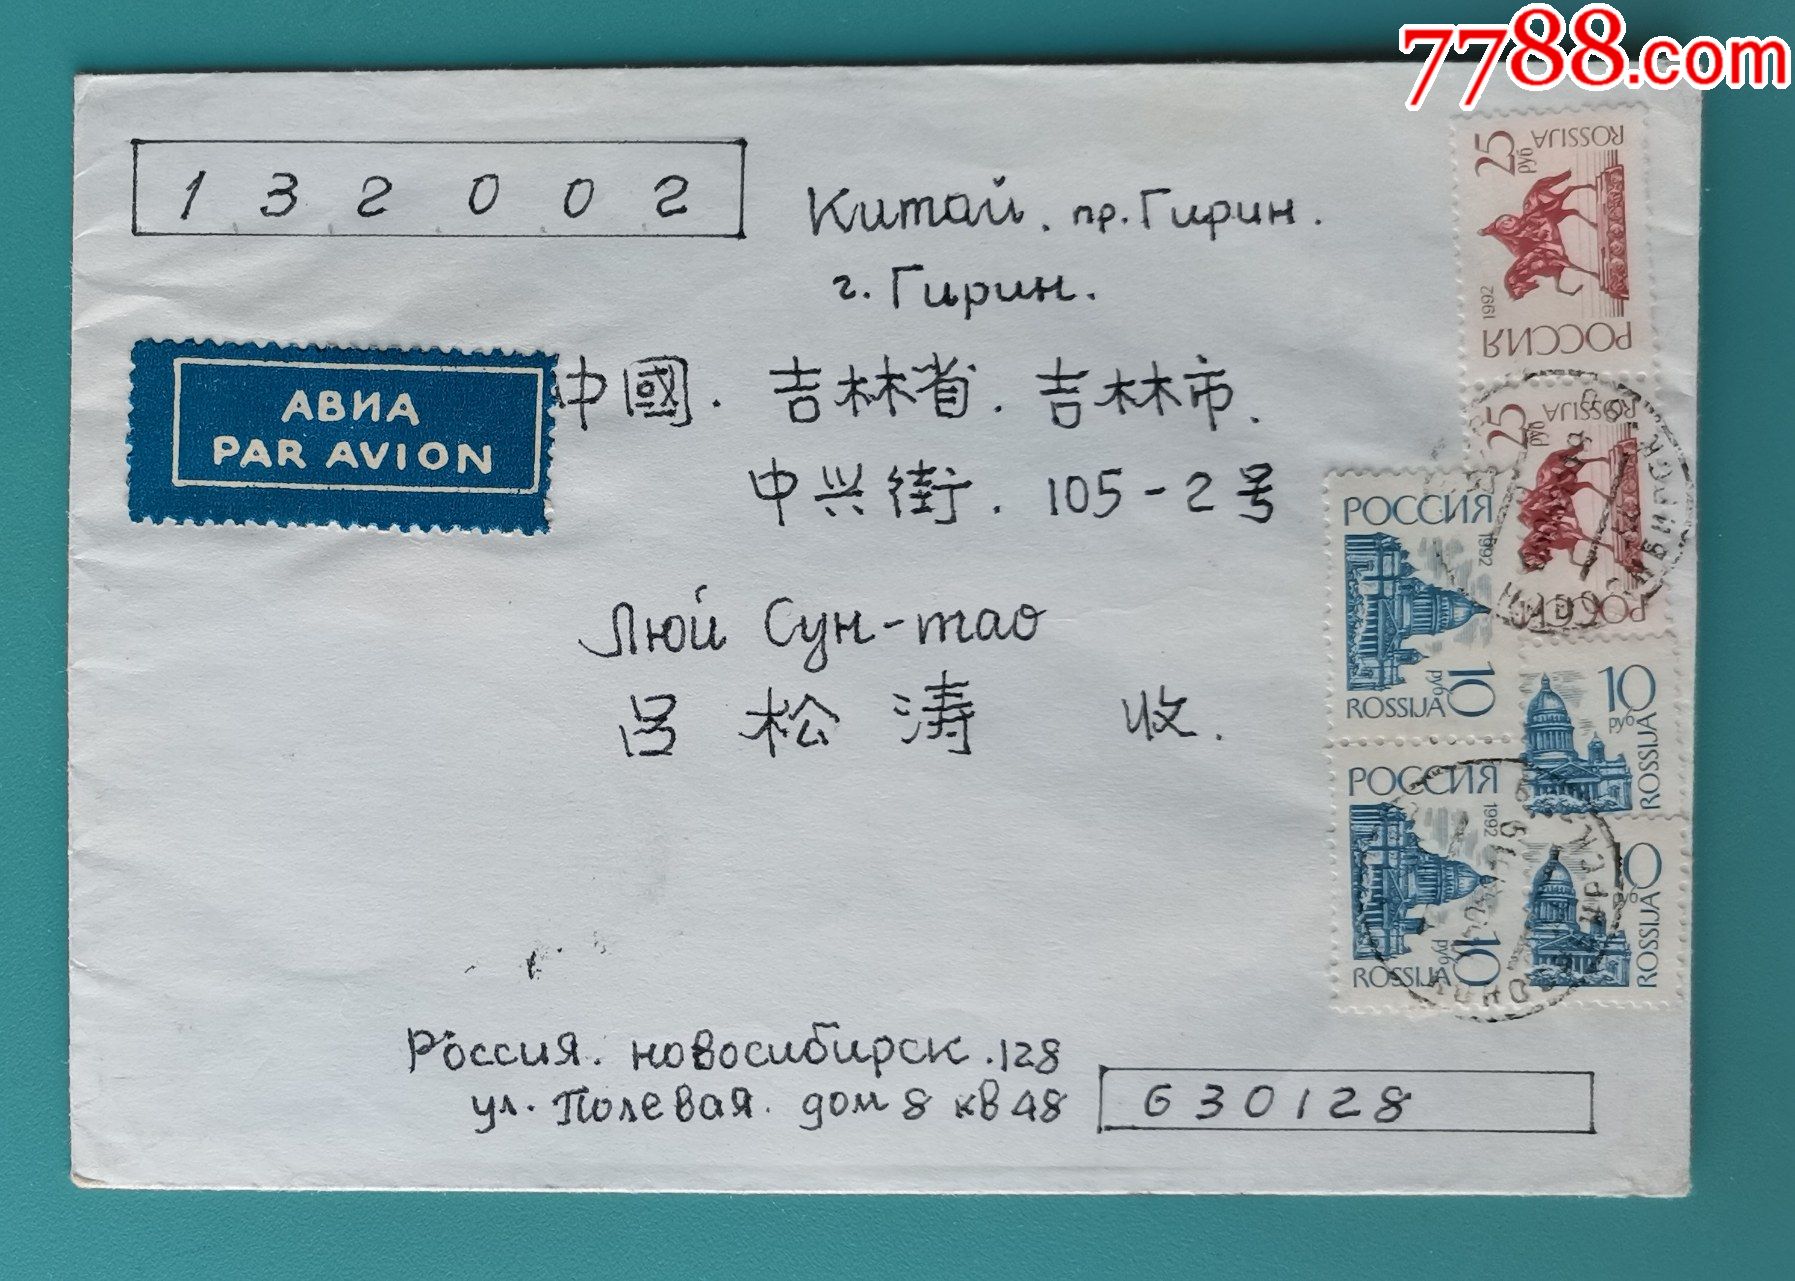 7788.com
132002
Китай. пр. Гирин.
г. Гирин.
АВИА
PAR AVION
中國. 吉林省. 吉林市.
中兴街. 105-2号
Люй Сун-тао
吕松涛 收.
25 руб ROSSIJA
1992
РОССИЯ
25 руб ROSSIJA
РОССИЯ
РОССИЯ
1992
10 руб
ROSSIJA
10 руб
ROSSIJA
РОССИЯ
1992
10 руб
ROSSIJA
10 руб
ROSSIJA
Россия. новосибирск. 128
ул. Полевая. дом 8 кв 48
630128